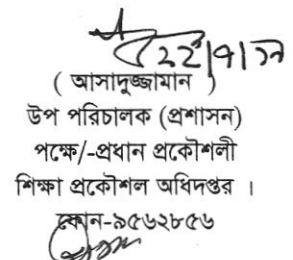 ২২|৭|১৯
( আসাদুজ্জামান )
উপ পরিচালক (প্রশাসন)
পক্ষে/-প্রধান প্রকৌশলী
শিক্ষা প্রকৌশল অধিদপ্তর ।
ফোন-৯৫৬২৮৫৬